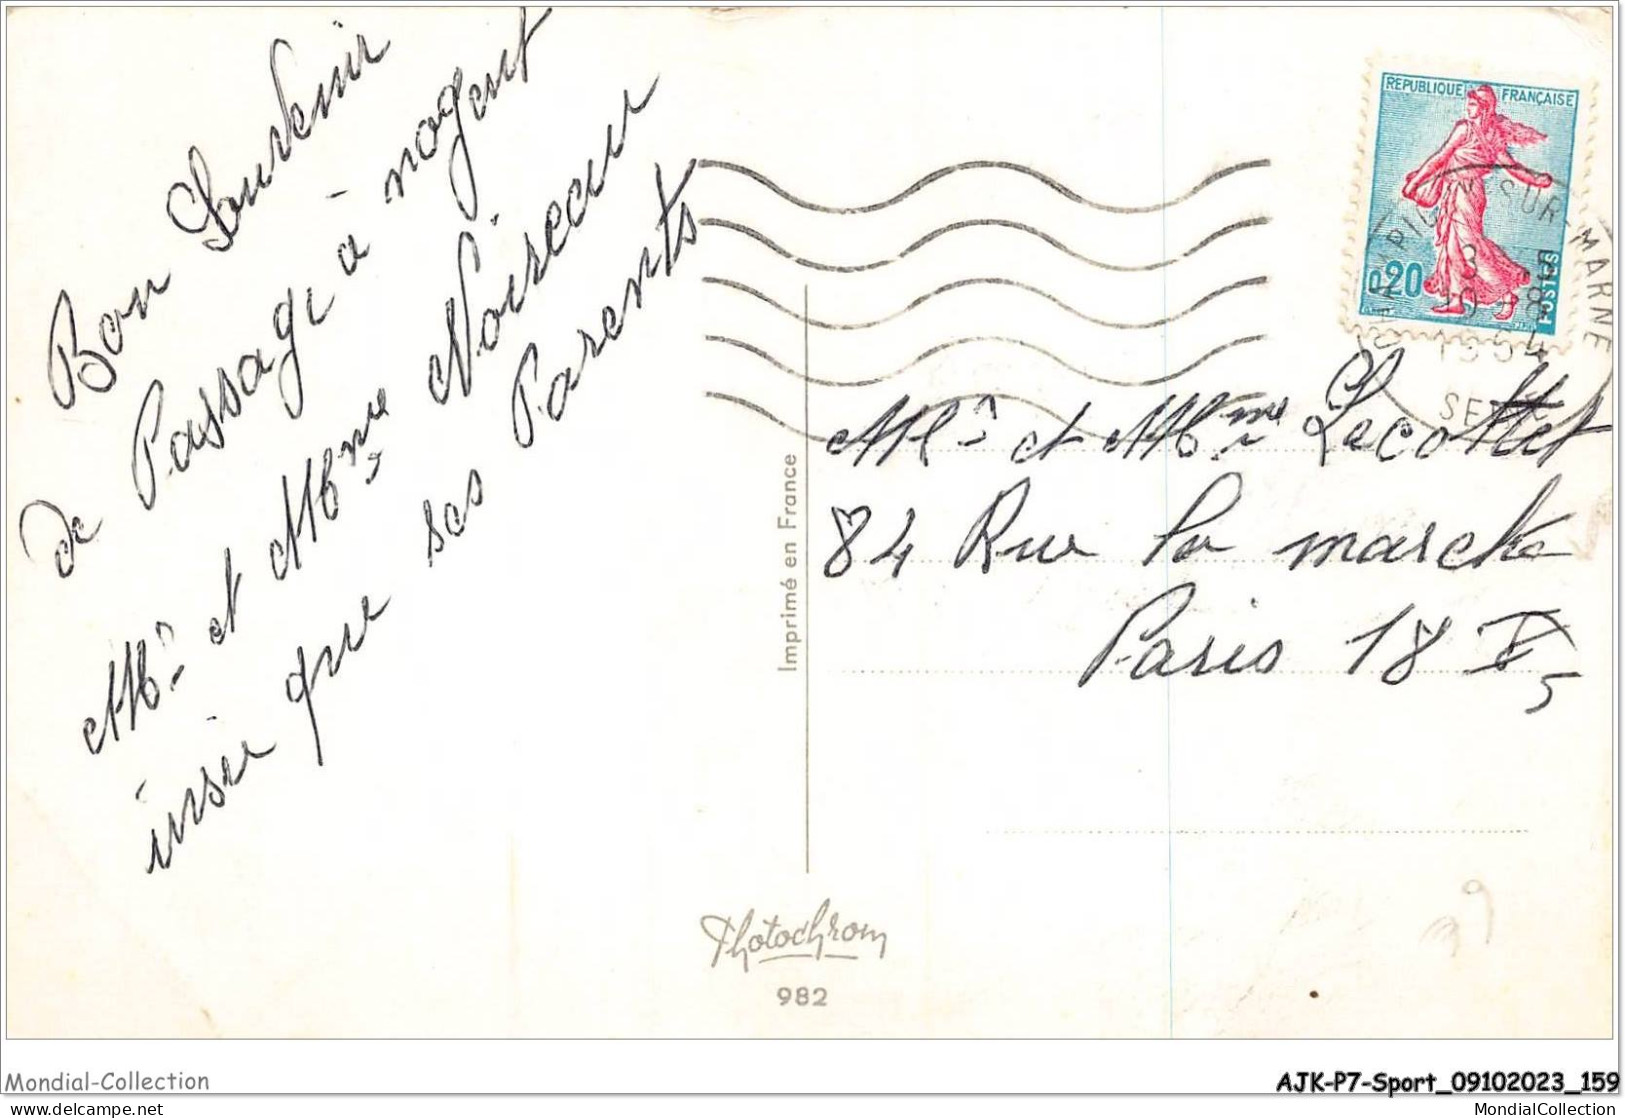 Bon Souvenir
de Passage à nogent
Mr et Mme Noiseau
insie que ses Parents
Imprimé en France
Photochrom
982
REPUBLIQUE FRANÇAISE
0,20
POSTES
CHAMPIGNY SUR MARNE
SEINE
Mr et Mme Lecottet
84 Rue La marck
Paris 18
39
Mondial-Collection
AJK-P7-Sport_09102023_159
www.delcampe.net
MondialCollection